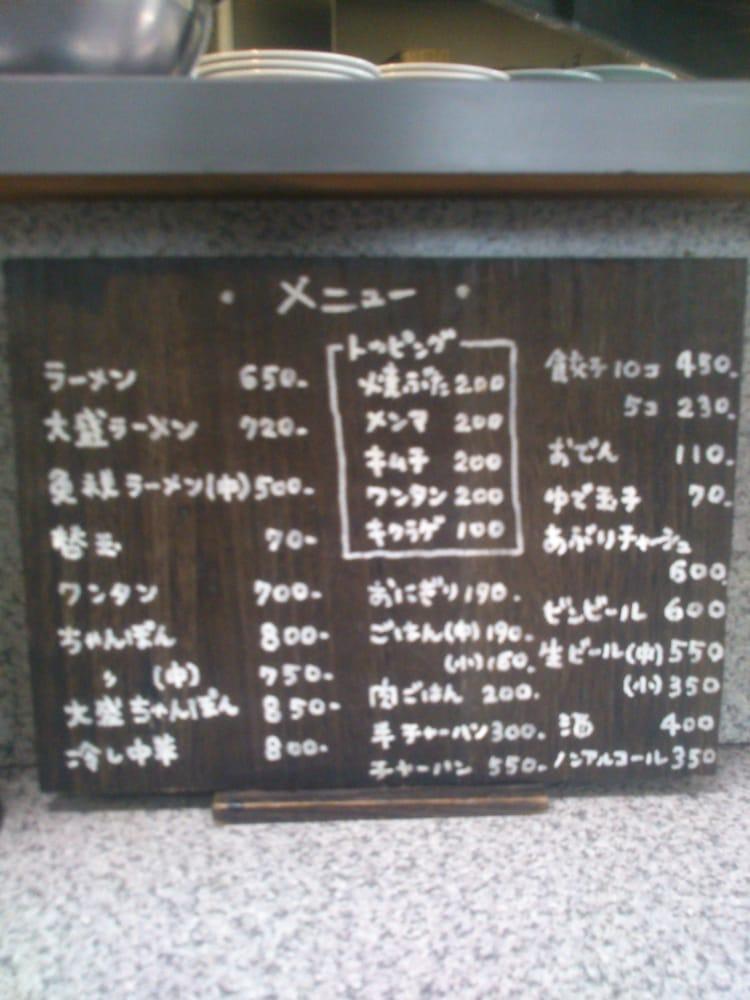 ・メニュー・
ラーメン 650-
大盛ラーメン 720-
ラーメン(中)500-
替玉 70-
ワンタン 700-
ちゃんぽん 800-
〃 (中) 750-
大盛ちゃんぽん 850-
冷し中華 800-
トッピング
焼ぶた 200
メンマ 200
キムチ 200
ワンタン 200
キクラゲ 100
おにぎり 190.
ごはん(中) 190.
(小) 160.
肉ごはん 200.
半チャーハン 300.
チャーハン 550-
餃子 10コ 450.
5コ 230.
おでん 110.
ゆで玉子 70.
あぶりチャーシュ
600.
ビンビール 600
生ビール(中) 550
(小) 350
酒 400
ノンアルコール 350